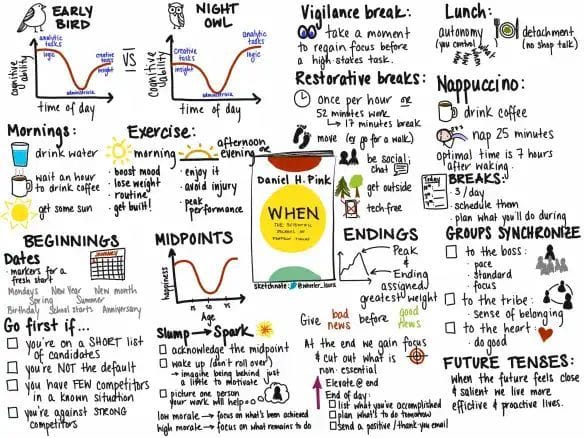 EARLY
BIRD
analytic
tasks
logic
creative
tasks
insight
administrative
cognitive
ability
time of day
VS
NIGHT
OWL
Creative
tasks
insight
analytic
tasks
logic
administrative
cognitive
ability
time of day
Vigilance break:
take a moment
to regain focus before
a high-stakes task.
Lunch:
autonomy
(you control)
detachment
(no shop talk)
Restorative breaks:
once per hour or
52 minutes work
↳ 17 minutes break
move (eg go for a walk)
be social;
chat
get outside
tech-free
Nappuccino:
drink coffee
nap 25 minutes
optimal time is 7 hours
after waking.
Mornings:
drink water
wait an hour
to drink coffee
get some sun
Exercise:
morning
• boost mood
• lose weight
• routine
• get built!
afternoon
evening or
• enjoy it
• avoid injury
• peak
performance
Daniel H. Pink
WHEN
THE SCIENTIFIC
SECRETS OF
PERFECT TIMING
sketchnote
Today
BREAKS:
• 3/day
• schedule them
• plan what you'll do during
BEGINNINGS
Dates
• markers for a
fresh start
Mondays New Year New month
Spring Summer
Birthday School starts Anniversary
MIDPOINTS
happiness
Age
ENDINGS
Peak
&
Ending
assigned
greatest weight
Give bad
news before good
news
At the end we gain focus
& cut out what is
non-essential
Elevate @ end
End of day:
list what you've accomplished
plan what to do tomorrow
send a positive / thank you email
GROUPS SYNCHRONIZE
to the boss:
• pace
• standard
• focus
to the tribe:
• sense of belonging
to the heart:
• do good
Go first if...
you're on a SHORT list
of candidates
you're NOT the default
you have FEW competitors
in a known situation
you're against STRONG
competitors
Slump → Spark
acknowledge the midpoint
wake up (don't roll over)
→ imagine being behind just
a little to motivate
picture one person
your work will help
low morale → focus on what's been achieved
high morale → focus on what remains to do
FUTURE TENSES:
when the future feels close
& salient we live more
effective & proactive lives.